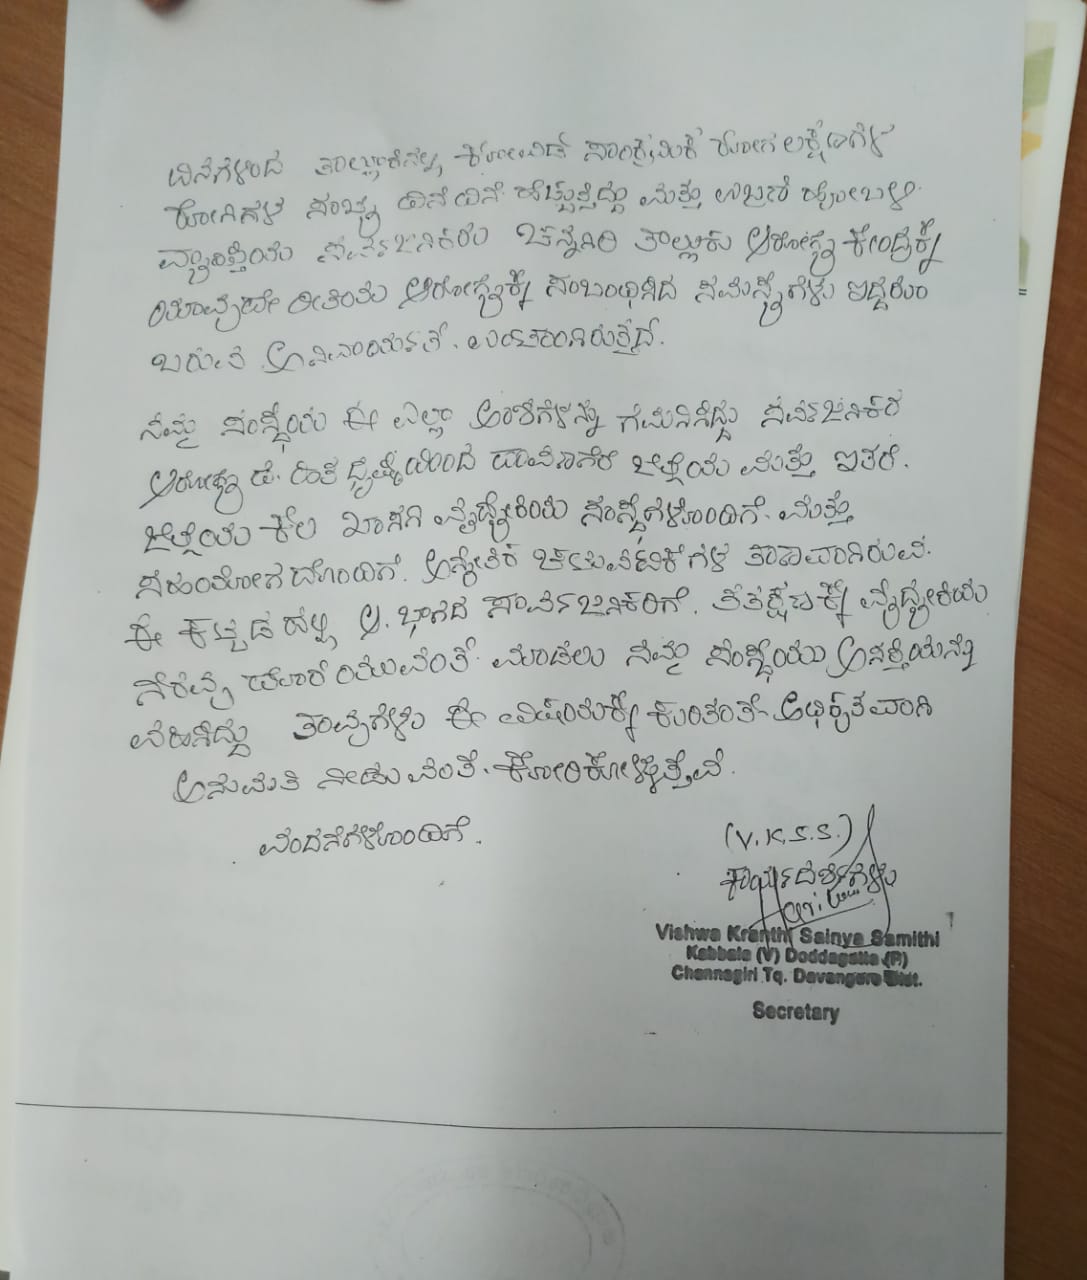 ದಿನಗಳಿಂದ ತಾಲ್ಲೂಕಿನಲ್ಲಿ ಕೋವಿಡ್ ಸಾಂಕ್ರಮಿಕ ರೋಗ ಲಕ್ಷಣಗಳ
ರೋಗಿಗಳ ಸಂಖ್ಯೆ ದಿನೆ ದಿನೆ ಹೆಚ್ಚುತ್ತಿದ್ದು ಮತ್ತು ಉಬ್ರಾಣಿ ಹೋಬಳಿ
ವ್ಯಾಪ್ತಿಯ ಸಾರ್ವಜನಿಕರು ಚನ್ನಗಿರಿ ತಾಲ್ಲೂಕು ಆರೋಗ್ಯ ಕೇಂದ್ರಕ್ಕೆ
ಯಾವುದೇ ರೀತಿಯ ಆರೋಗ್ಯಕ್ಕೆ ಸಂಬಂಧಿಸಿದ ಸಮಸ್ಯೆಗಳು ಇದ್ದರೂ
ಬರುವ ಅನಿವಾರ್ಯತೆ. ಉಂಟಾಗಿರುತ್ತದೆ.
ನಮ್ಮ ಸಂಸ್ಥೆಯು ಈ ಎಲ್ಲಾ ಅಂಶಗಳನ್ನು ಗಮನಿಸಿದ್ದು ಸಾರ್ವಜನಿಕರ
ಆರೋಗ್ಯ ದೃಷ್ಟಿಯಿಂದ ದಾವಣಗೆರೆ ಜಿಲ್ಲೆಯ ಮತ್ತು ಇತರೆ.
ಜಿಲ್ಲೆಯ ಕೆಲ ಖಾಸಗಿ ವೈದ್ಯಕೀಯ ಸಂಸ್ಥೆಗಳೊಂದಿಗೆ. ಮತ್ತು
ಸಹಯೋಗದೊಂದಿಗೆ. ಚಟುವಟಿಕೆಗಳ
ಈ ಕಟ್ಟಡದಲ್ಲಿ ಆ. ಭಾಗದ ಸಾರ್ವಜನಿಕರಿಗೆ. ತತಕ್ಷಣಕ್ಕೆ ವೈದ್ಯಕೀಯ
ನೆರವು ದೊರೆಯುವಂತೆ. ಮಾಡಲು ನಮ್ಮ ಸಂಸ್ಥೆಯು ಆಸಕ್ತಿಯನ್ನು
ವಹಿಸಿದ್ದು ತಾವುಗಳು ಈ ವಿಷಯಕ್ಕೆ ಕುರಿತಂತೆ ಅಧಿಕೃತವಾಗಿ
ಅನುಮತಿ ನೀಡುವಂತೆ. ಕೋರಿಕೊಳ್ಳುತ್ತೇವೆ.
ವಂದನೆಗಳೊಂದಿಗೆ.
(V.K.S.S.)
ಕಾರ್ಯದರ್ಶಿಗಳು
Vishwa Kranthi Sainya Samithi
Kabbala (V) Doddagatta (P)
Chennagiri Tq. Davangere Dist.
Secretary